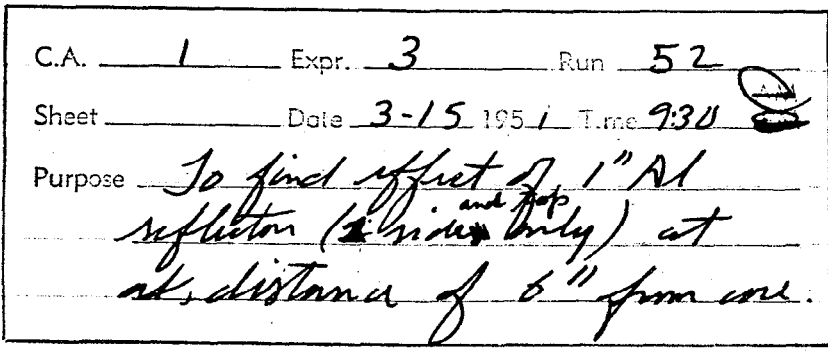 C.A. 1 Expr. 3 Run 52
Sheet Date 3-15 1951 Time 9:30 AM
Purpose To find effect of 1" Al
and top
reflector (side only) at
at distance of 6" from core.